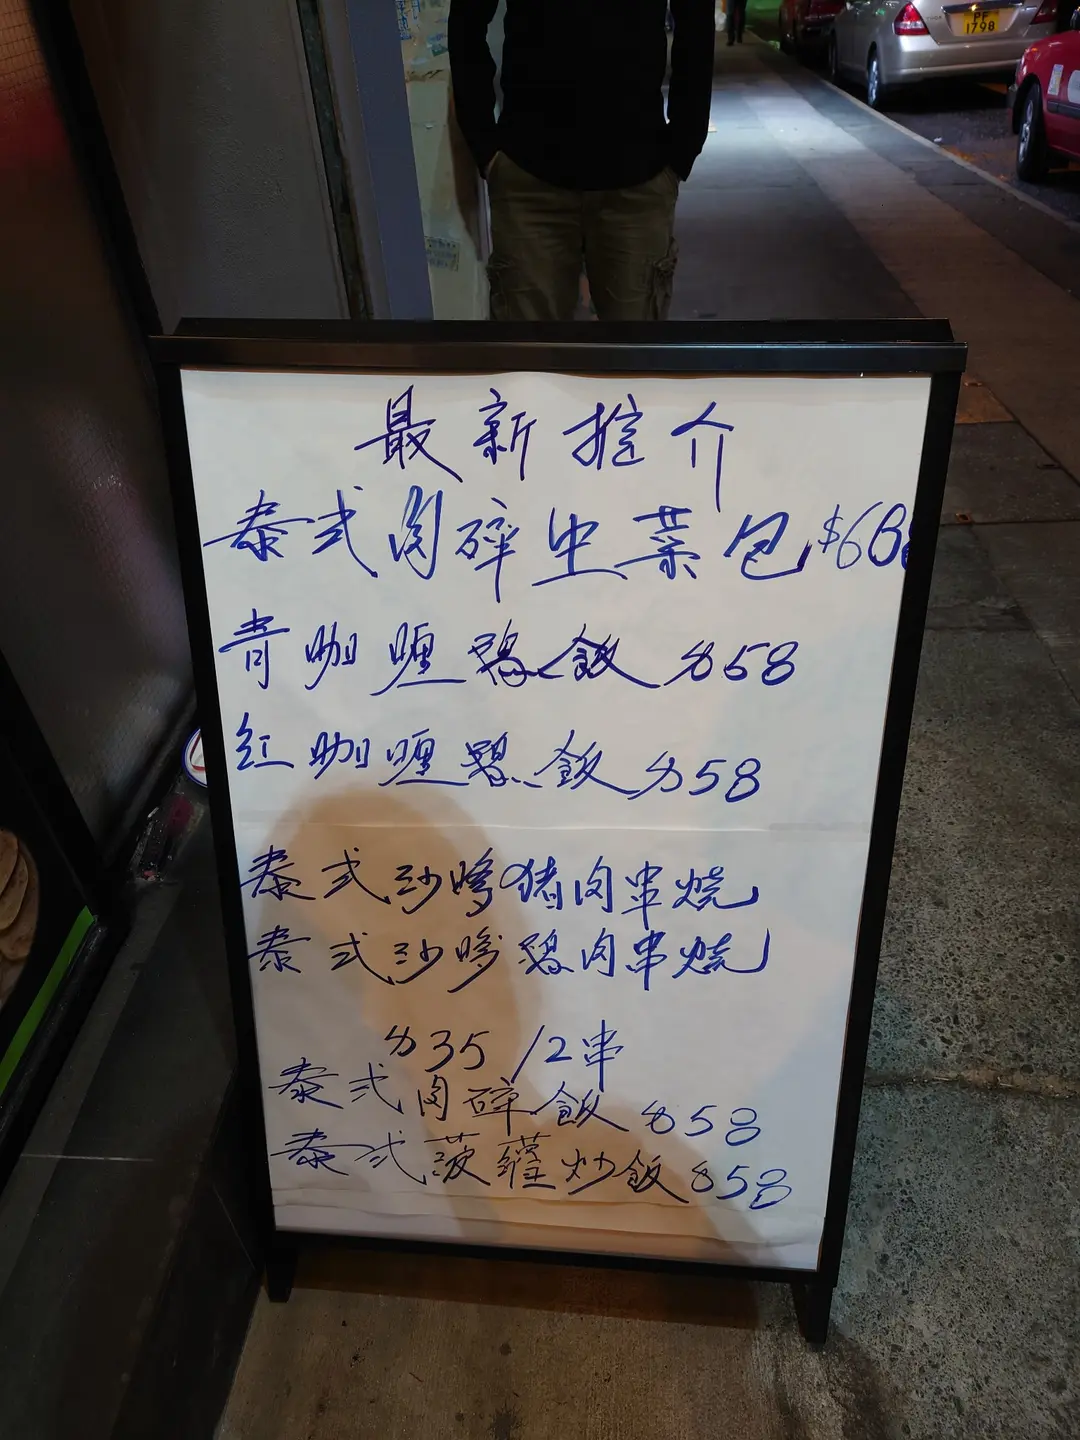 PF
1798
最新推介
泰式肉碎生菜包 $68
青咖喱雞飯 $58
紅咖喱雞飯 $58
泰式沙嗲猪肉串燒
泰式沙嗲雞肉串燒
$35 /2串
泰式肉碎飯 $58
泰式菠蘿炒飯 $58